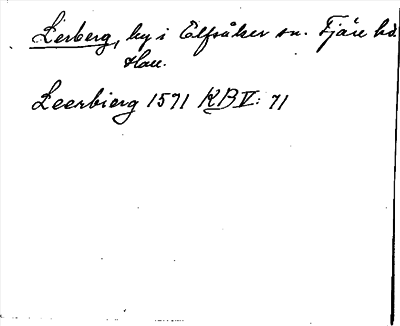 Lerberg, by i Älfsåker sn. Fjäre hd
Hall.
Leerbierg 1571 KB V: 71